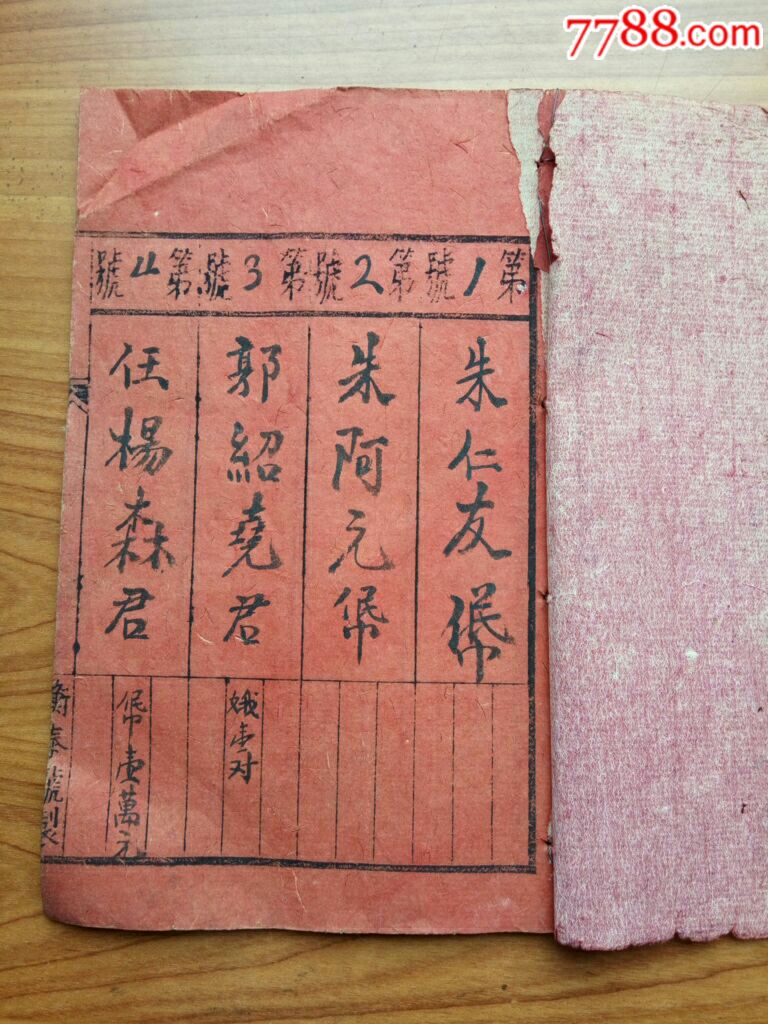 7788.com
第1號
第2號
第3號
第4號
朱仁友
朱阿元
郭紹堯君
任楊森君
壹对
壹萬元
號製